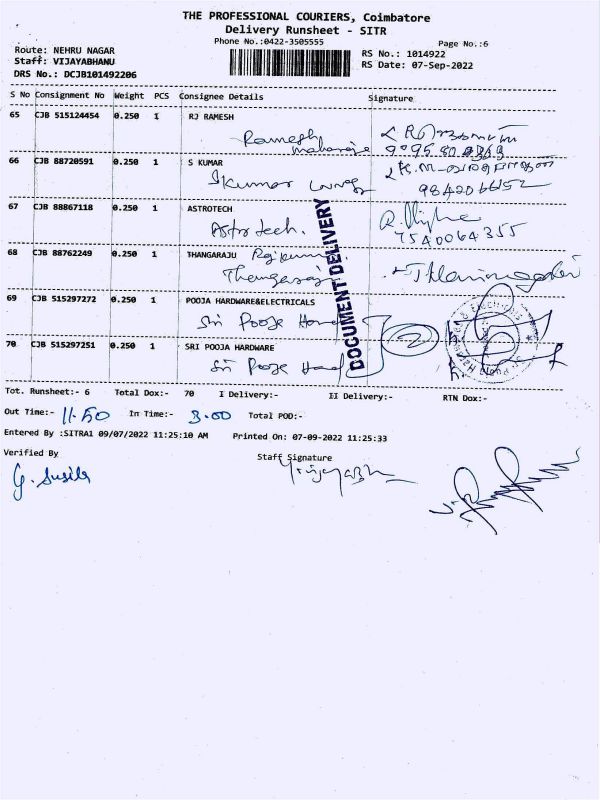 THE PROFESSIONAL COURIERS, Coimbatore
Delivery Runsheet - SITR
Phone No.:0422-3505555
Page No.:6
Route: NEHRU NAGAR
Staff: VIJAYABHANU
DRS No.: DCJB101492206
RS No.: 1014922
RS Date: 07-Sep-2022
S No Consignment No Weight PCS Consignee Details Signature
65 CJB 515124454 0.250 1 RJ RAMESH
Ramesh
66 CJB 88720591 0.250 1 S KUMAR
S Kumar
9842066152
67 CJB 88867118 0.250 1 ASTROTECH
Astro tech.
7540064355
68 CJB 88762249 0.250 1 THANGARAJU Rajkumar
Thangaraju
69 CJB 515297272 0.250 1 POOJA HARDWARE&ELECTRICALS
Sri Pooja Hard
70 CJB 515297251 0.250 1 SRI POOJA HARDWARE
Sri Pooja Hard
DOCUMENT DELIVERY
Tot. Runsheet:- 6 Total Dox:- 70 I Delivery:- II Delivery:- RTN Dox:-
Out Time:- 11.50 In Time:- 3.00 Total POD:-
Entered By :SITRA1 09/07/2022 11:25:10 AM Printed On: 07-09-2022 11:25:33
Verified By
G. Susila
Staff Signature